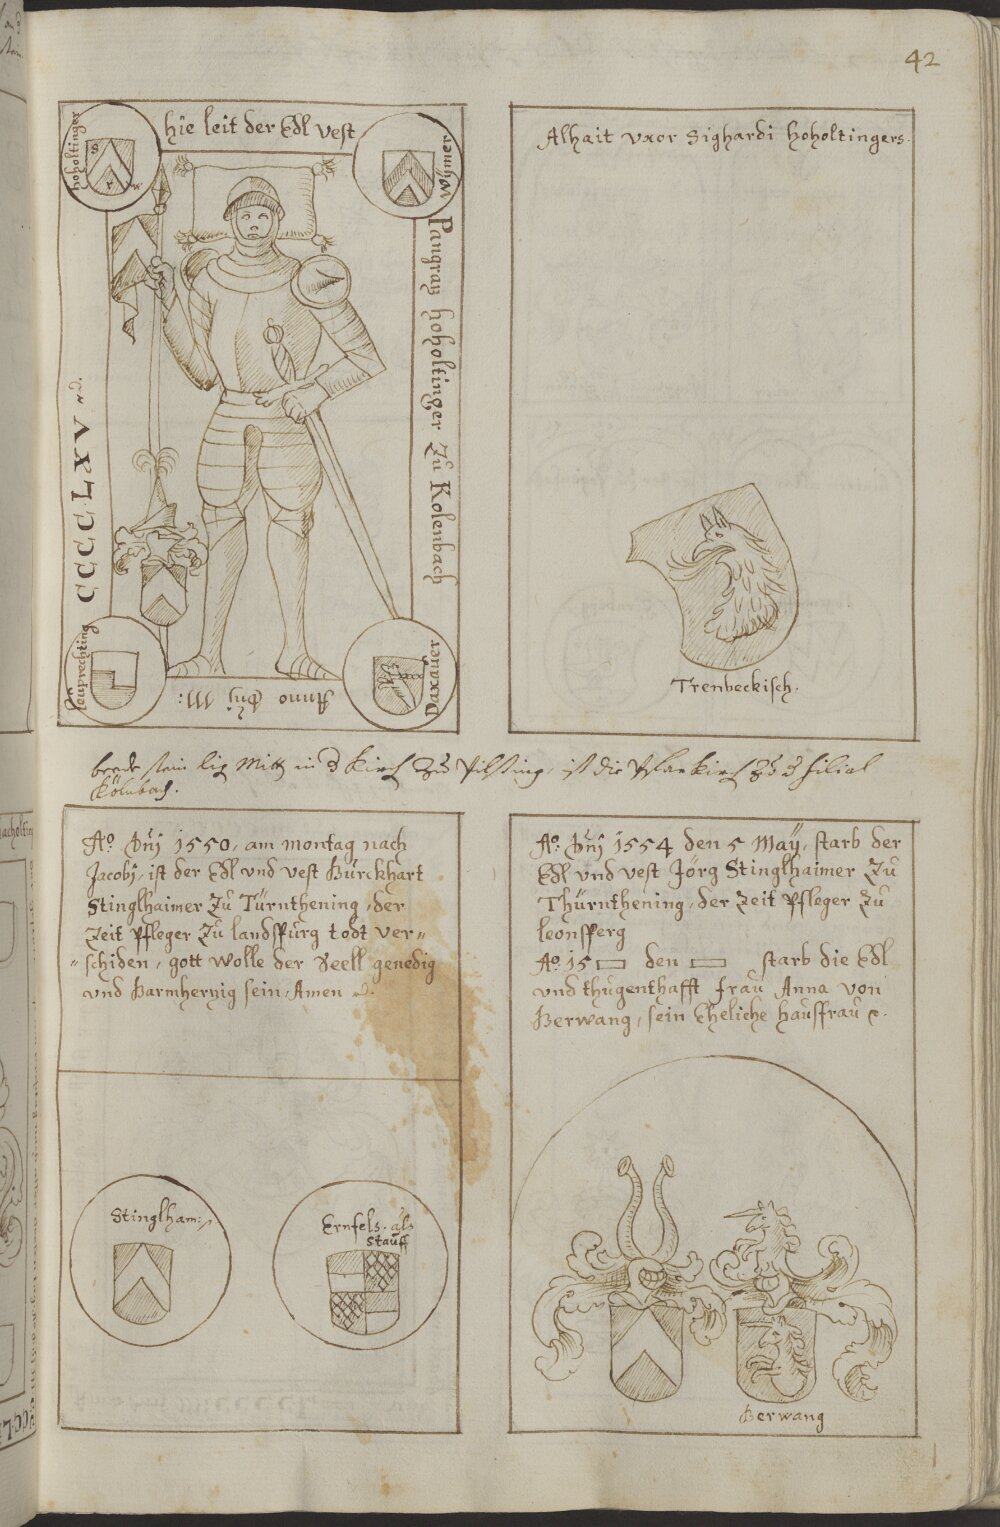 42
hie leit der Edl vest
Pangratz hoholtinger Zu Kolenbach
Anno Dnj M:
CCCCLXV
hoholtinger
S
r
w
Leuprechting
Daxauer
Alhait vxor Sighardi hoholtingers.
Trenbeckisch.
beede stain lig Mitt in d Kirch zu Pilsting, ist die Pfarkirch zu d filial
Kölnbach.
Ao. Dnj 1550, am montag nach
Jacobj, ist der Edl vnd vest Burckhart
Stinglhaimer Zu Türnthening, der
Zeit Pfleger Zu landspurg todt ver=
=schiden, gott wolle der Seell genedig
vnd Barmhertzig sein, Amen
Stinglham:
Ernfels. als
Stauff
Ao. Dnj 1554 den 5 May, starb der
Edl vnd vest Jörg Stinglhaimer Zu
Thürnthening, der Zeit Pfleger Zu
leonsperg
Ao. 15 den starb die Edl
vnd thugenthafft frau Anna von
Berwang, sein Eheliche hausfrau
Berwang